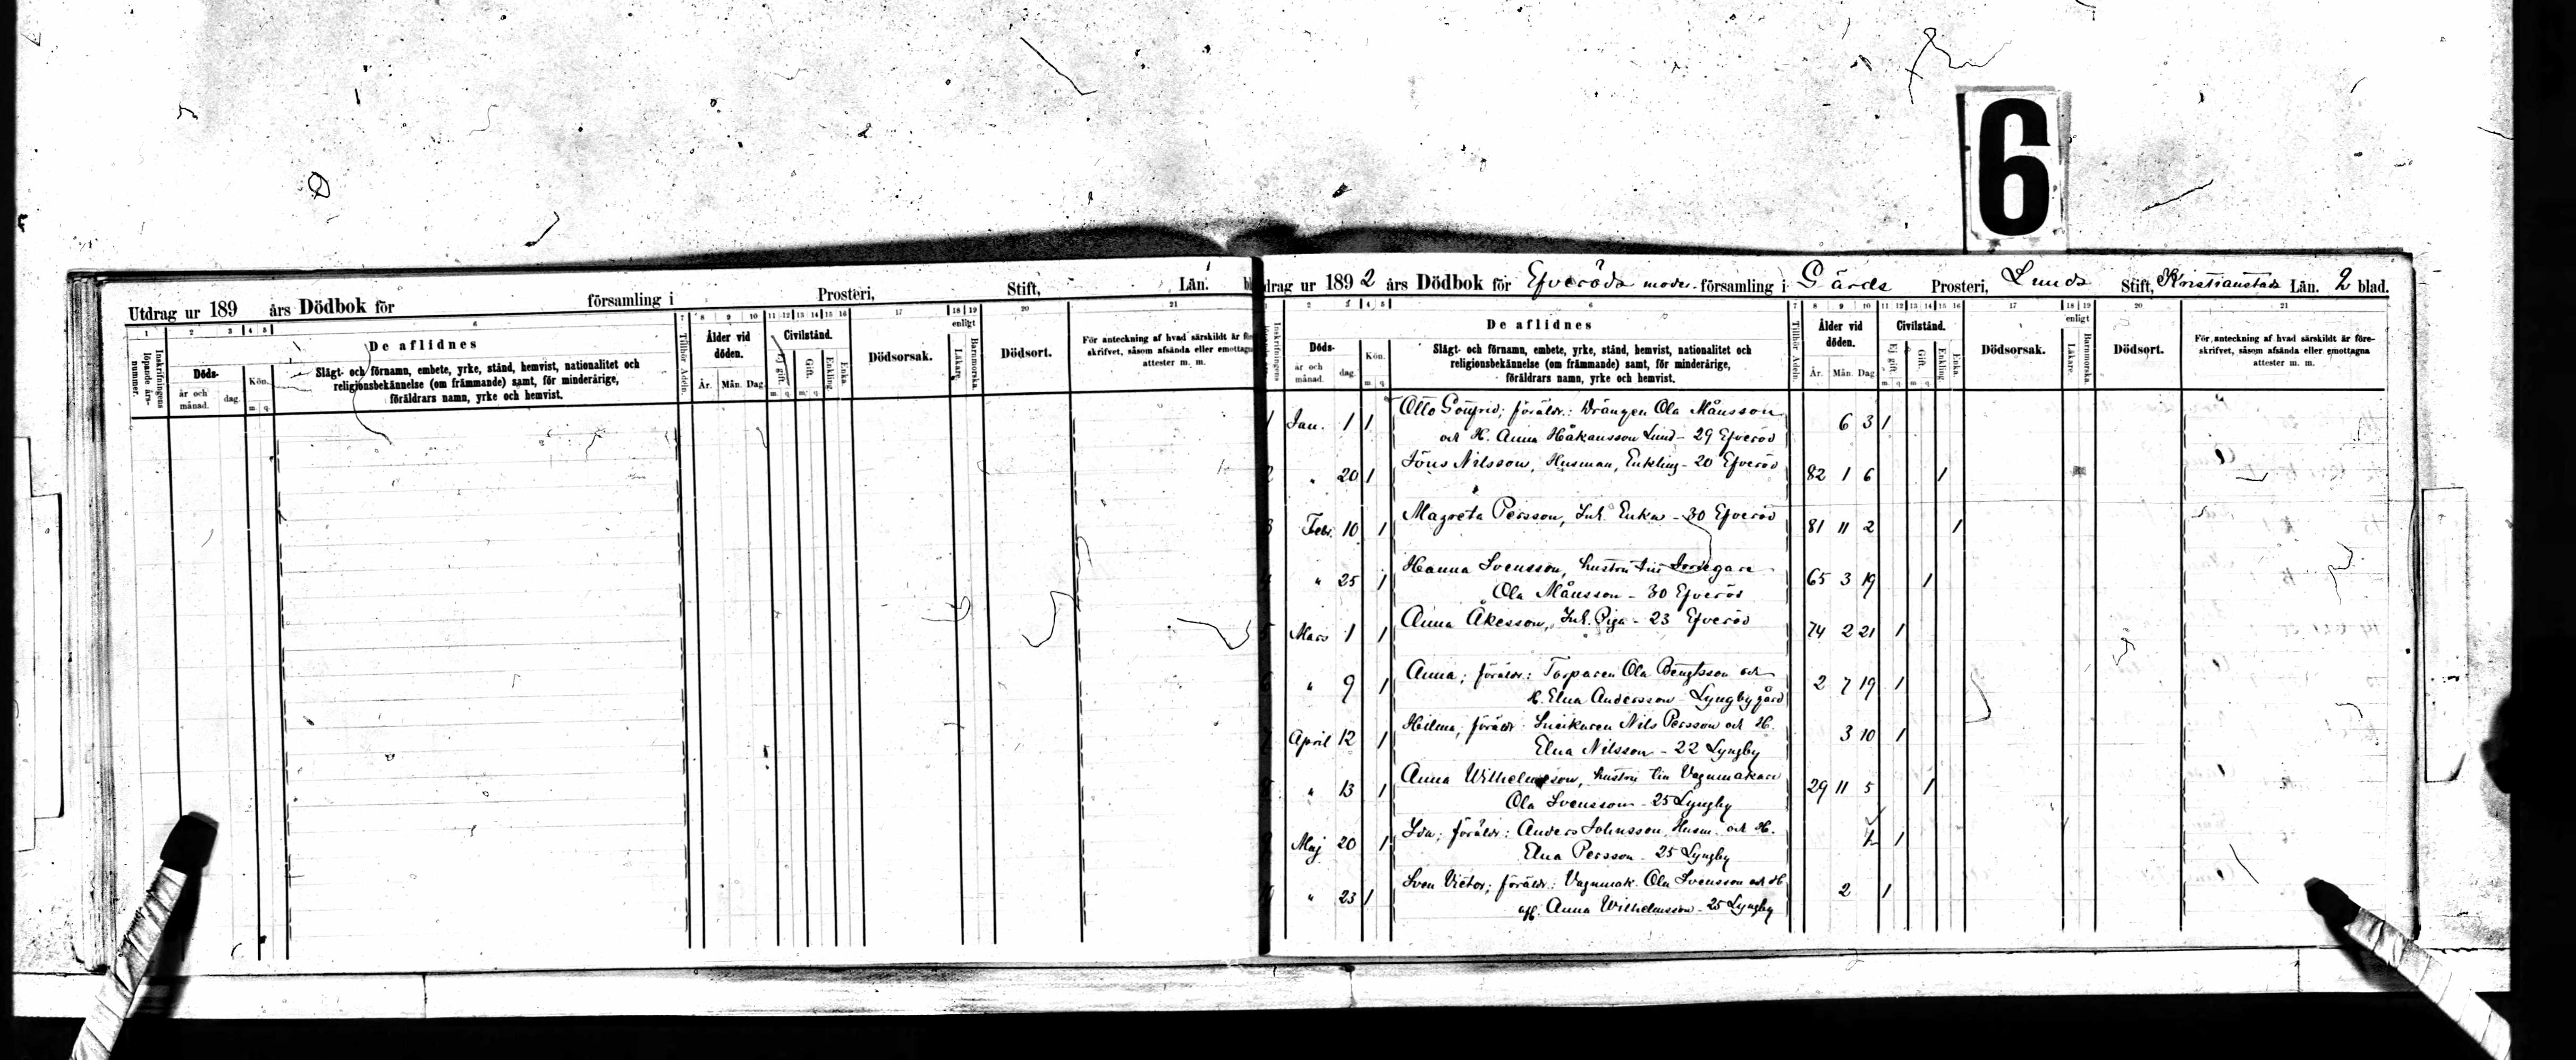 6
Utdrag ur 189 års Dödbok för församling i Prosteri, Stift, Län.
1 2 3 4 5 6 7 8 9 10 11 12 13 14 15 16 17 18 19 20 21
Inskrifningens löpande årsnummer.
Döds-
år och månad. dag.
Kön.
m. q.
De aflidnes
Slägt- och förnamn, embete, yrke, stånd, hemvist, nationalitet och
religionsbekännelse (om främmande) samt, för minderårige,
föräldrars namn, yrke och hemvist.
Tillhör Adeln.
Ålder vid döden.
År. Mån. Dag
Civilstånd.
Ej gift. Gift. Enkling. Enka.
m. q. m. q.
Dödsorsak.
enligt
Läkare. Barnmorska.
Dödsort.
För anteckning af hvad särskildt är
skrifvet, såsom afsända eller emottagna
attester m. m.
drag ur 1892 års Dödbok för Efveröds moder församling i Gärds Prosteri, Lunds Stift, Kristianstads Län. 2 blad.
2 3 4 5 6 7 8 9 10 11 12 13 14 15 16 17 18 19 20 21
Inskrifningens
Döds-
år och månad. dag.
Kön.
m q
De aflidnes
Slägt- och förnamn, embete, yrke, stånd, hemvist, nationalitet och
religionsbekännelse (om främmande) samt, för minderårige,
föräldrars namn, yrke och hemvist.
Tillhör Adeln.
Ålder vid döden.
År. Mån. Dag
Civilstånd.
Ej gift. Gift. Enkling. Enka.
m q m q
Dödsorsak.
enligt
Läkare. Barnmorska.
Dödsort.
För anteckning af hvad särskildt är före-
skrifvet, såsom afsända eller emottagna
attester m. m.
1 Jan. 1 1 Otto Gottfrid; föräldr.: Drängen Ola Månsson 6 3 1
och H. Anna Håkansson Lund - 29 Efveröd
2 " 20 1 Jöns Nilsson, Husman, Enkling - 20 Efveröd 82 1 6 1
3 Febr. 10 1 Magreta Persson, Inh. Enka - 30 Efveröd 81 11 2 1
4 " 25 1 Hanna Svensson, hustru till Jordegare 65 3 19 1
Ola Månsson - 30 Efveröd
5 Mars 1 1 Anna Åkesson, Inh. Piga - 23 Efveröd 74 2 21 1
6 " 9 1 Anna; föräldr.: Torparen Ola Bengtsson och 2 7 19 1
H. Elna Andersson - Lyngbygård
7 April 12 1 Hilma; föräldr. Snickaren Nils Persson och H. 3 10 1
Elna Nilsson - 22 Lyngby
" 13 1 Anna Wilhelmsson, hustru till Vagnmakare 29 11 5 1
Ola Svensson - 25 Lyngby
Maj 20 1 Ida; föräldr.: Anders Johnsson, Husm. och H. 1
Elna Persson - 25 Lyngby
" 23 1 Sven Victor; föräldr.: Vagnmak. Ola Svensson och H 2 1
afl. Anna Wilhelmsson - 25 Lyngby